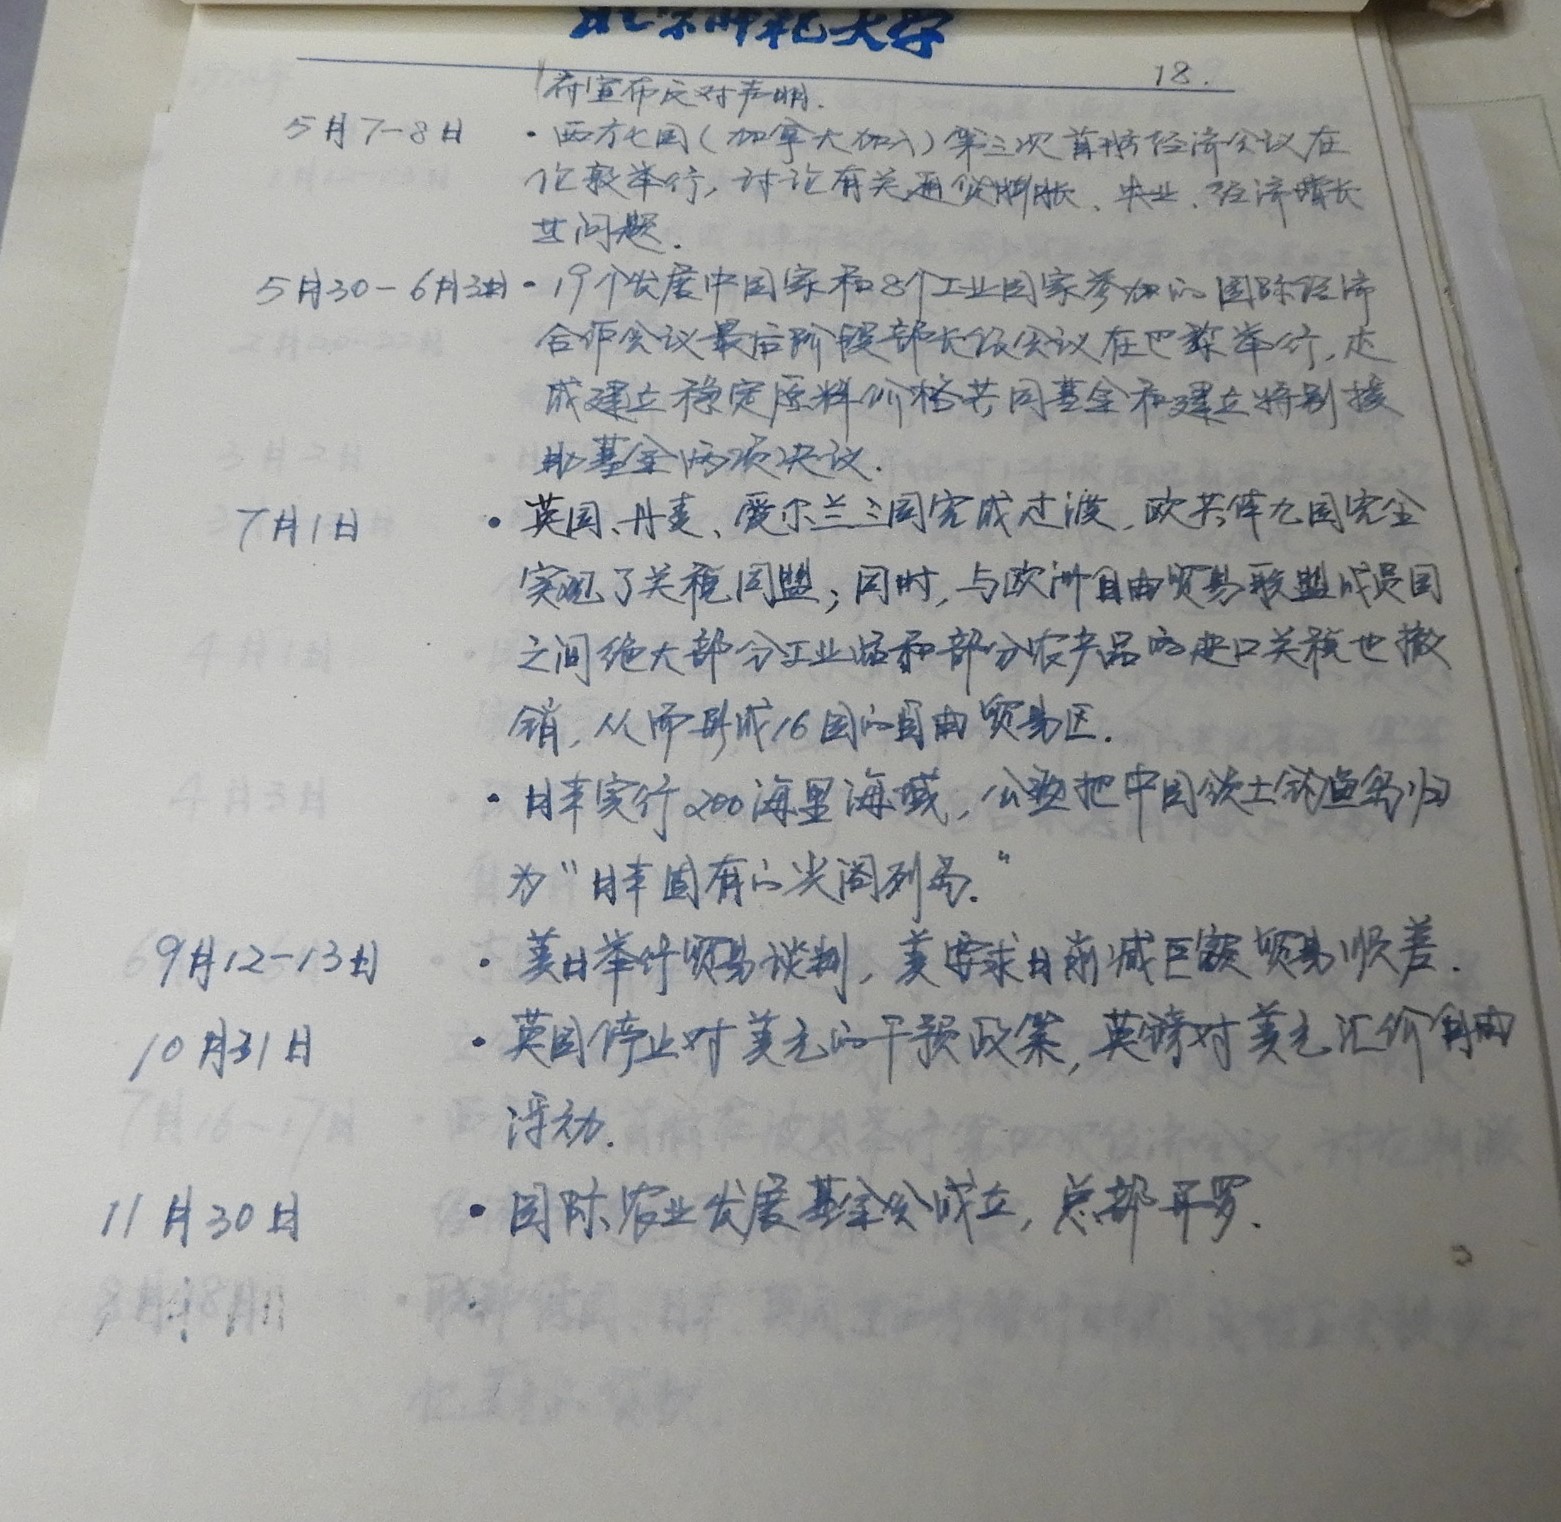 北京师范大学
18.
府宣布反对声明.
5月7-8日 ·西方七国(加拿大加入)第三次首脑经济会议在
伦敦举行,讨论有关通货膨胀、失业、经济增长
其问题.
5月30-6月3日 ·19个发展中国家和8个工业国家参加的国际经济
合作会议最后阶段部长级会议在巴黎举行,达
成建立稳定原料价格共同基金和建立特别援
助基金两项决议.
7月1日 ·英国、丹麦、爱尔兰三国完成过渡,欧共体九国完全
实现了关税同盟;同时,与欧洲自由贸易联盟成员国
之间绝大部分工业品和部分农产品的进口关税也撤
销,从而形成16国的自由贸易区.
·日本实行200海里海域,公然把中国领土钓鱼岛归
为“日本固有的尖阁列岛.”
9月12-13日 ·美日举行贸易谈判,美要求日削减巨额贸易顺差.
10月31日 ·英国停止对美元的干预政策,英镑对美元汇价自由
浮动.
11月30日 ·国际农业发展基金会成立,总部开罗.